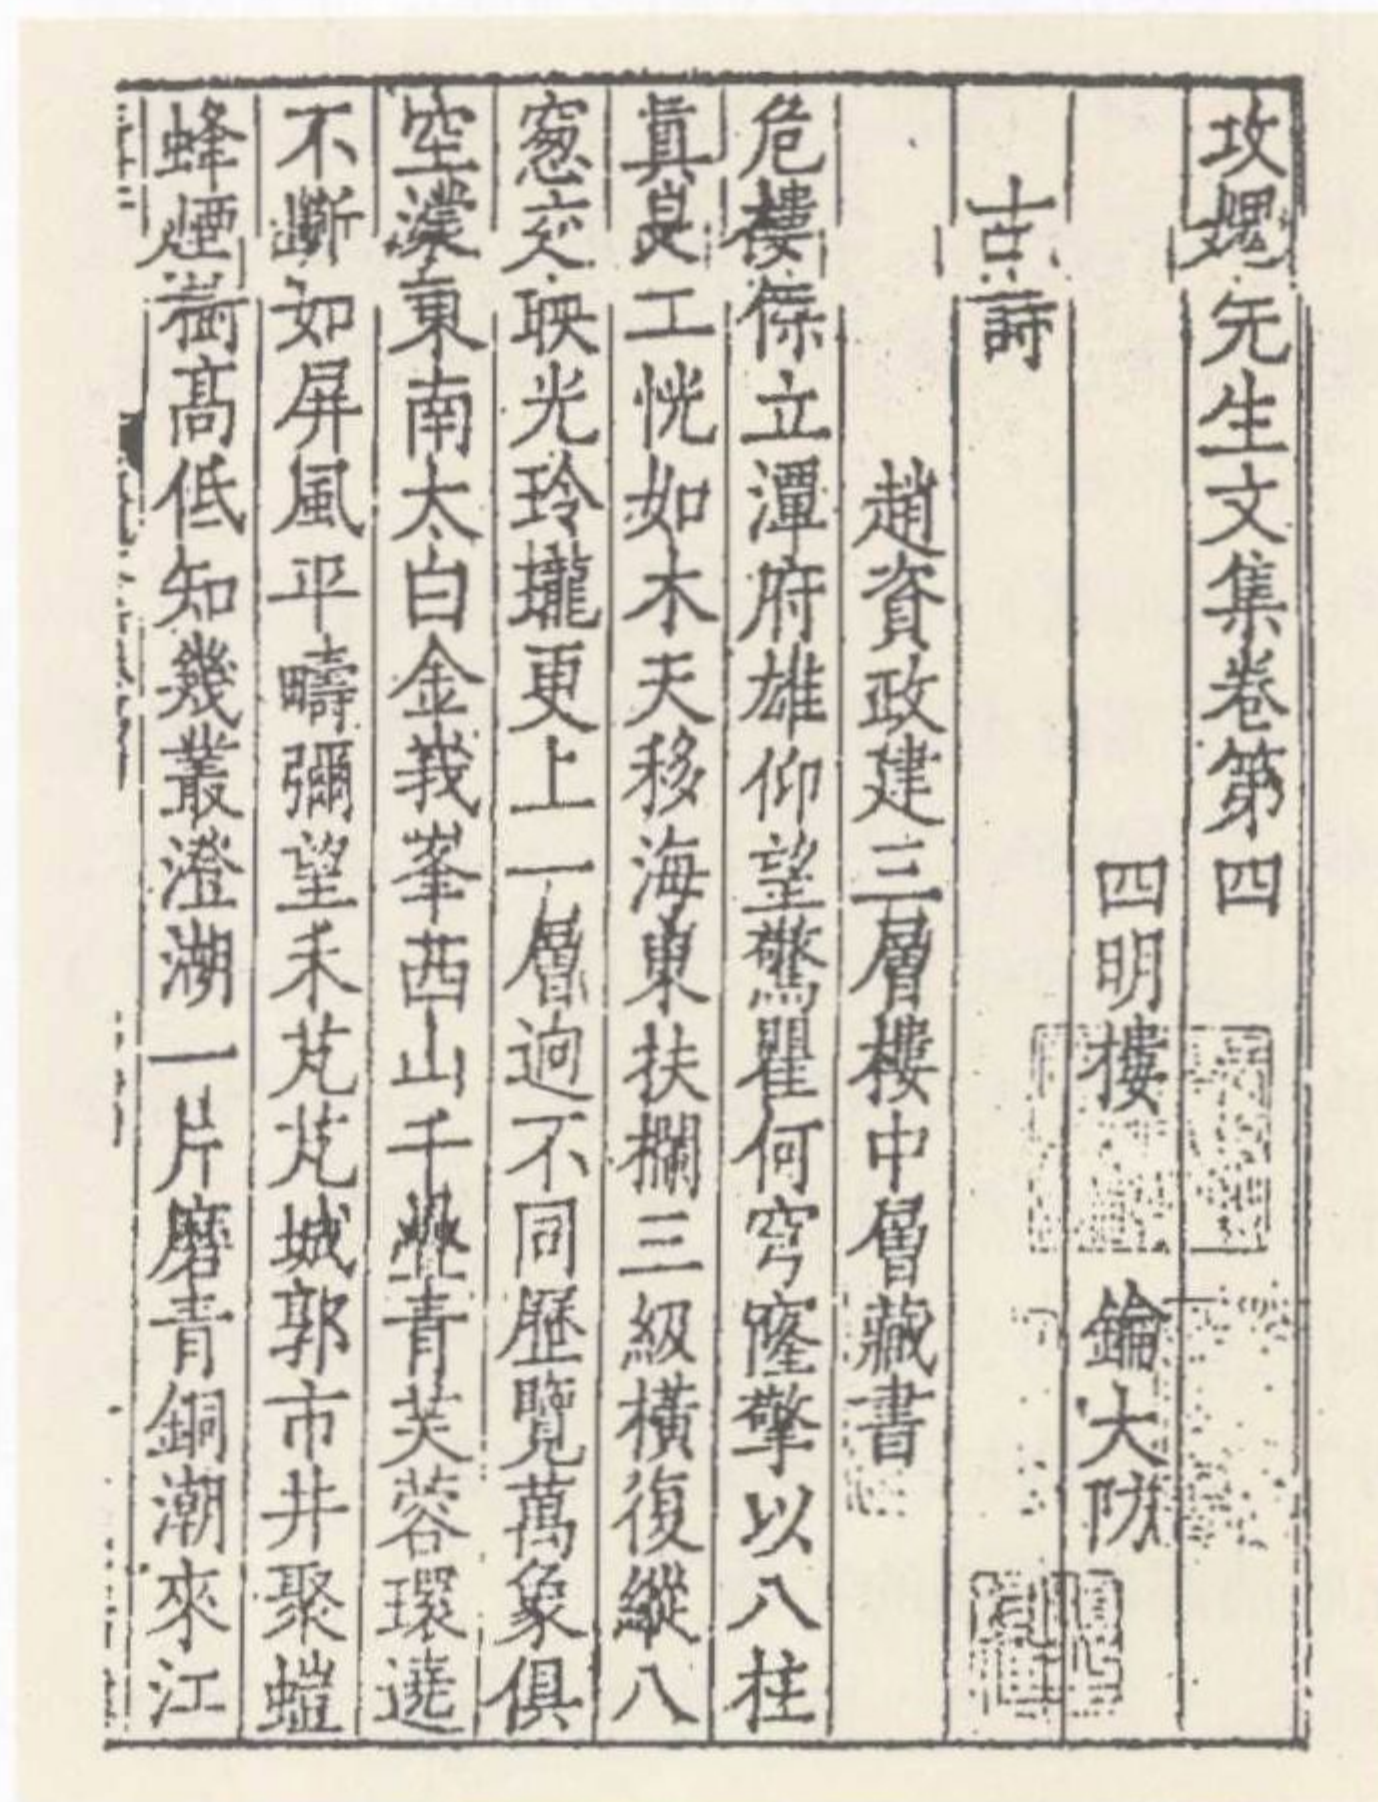 攻媿先生文集卷第四
四明樓　鑰大防
古詩
趙資政建三層樓中層藏書
危樓傑立潭府雄仰望驚瞿何穹窿擎以八柱
眞良工恍如木天移海東扶欄三級橫復縱八
窓交映光玲瓏更上一層逈不同歷覽萬象俱
空濛東南太白金峩峯西山千疊青芙蓉環遶
不斷如屏風平疇彌望禾芃芃城郭市井聚螘
蜂煙樹高低知幾叢澄湖一片磨青銅潮來江